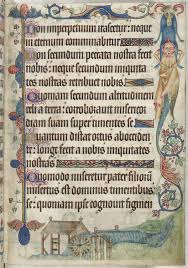 Non imperpetuum irascetur: neque
in eternum comminabitur
Non secundum peccata nostra fecit
nobis: neque secundum iniquita
tes nostras retribuit nobis
Quoniam secundum altitudinem celi
a terra: corroborauit misericor
diam suam super timentes se
Quantum distat ortus ab occiden
te: longe fecit a nobis iniquitates
nostras
Quomodo miseretur pater filiorum
misertus est dominus timentibus
se: quoniam ipse cognouit figmen